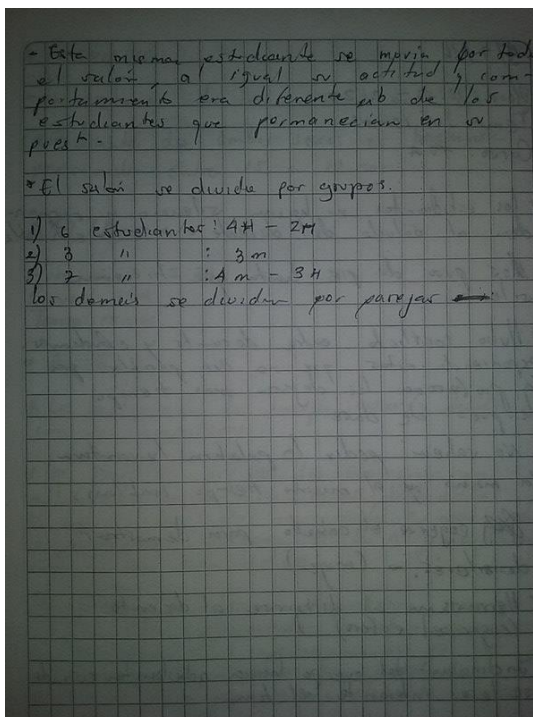 - Esta misma estudiante se movia por tod
el salón, a igual su actitud y com-
portamiento era diferente de los
estudiantes que permanecian en su
puest.
* El salón se divide por grupos.
1) 6 estudiantes: 4H - 2M
2) 3 " : 3m
3) 7 " : 4m - 3H
los demás se dividen por parejas